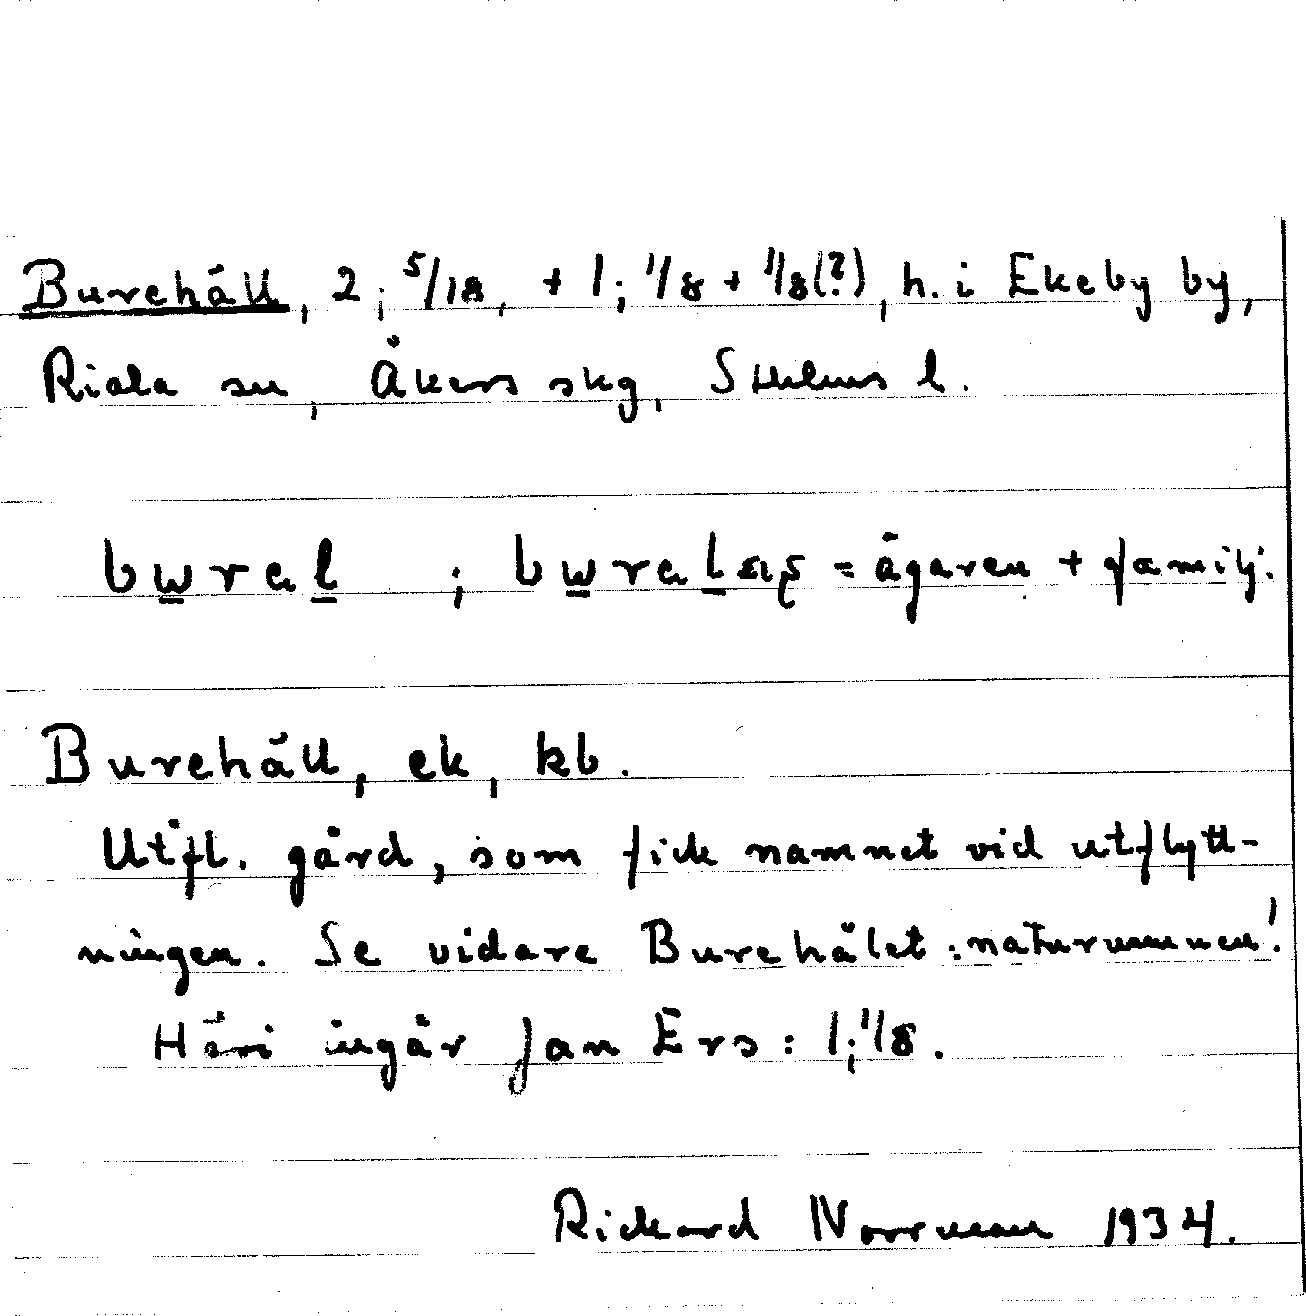 Burehäll, 2; 5/18, + 1; 1/8 + 1/8(?), h. i Ekeby by,
Riala sn, Åkers skg, Sthlms l.
bwral ; bwral = ägaren + familj.
Burehäll, ek, kb.
Utfl. gård, som fick namnet vid utflytt-
ningen. Se vidare Burehälet : naturnamnen!
Häri ingår Jan Ers : 1; 1/8.
Rickard Norrman 1934.